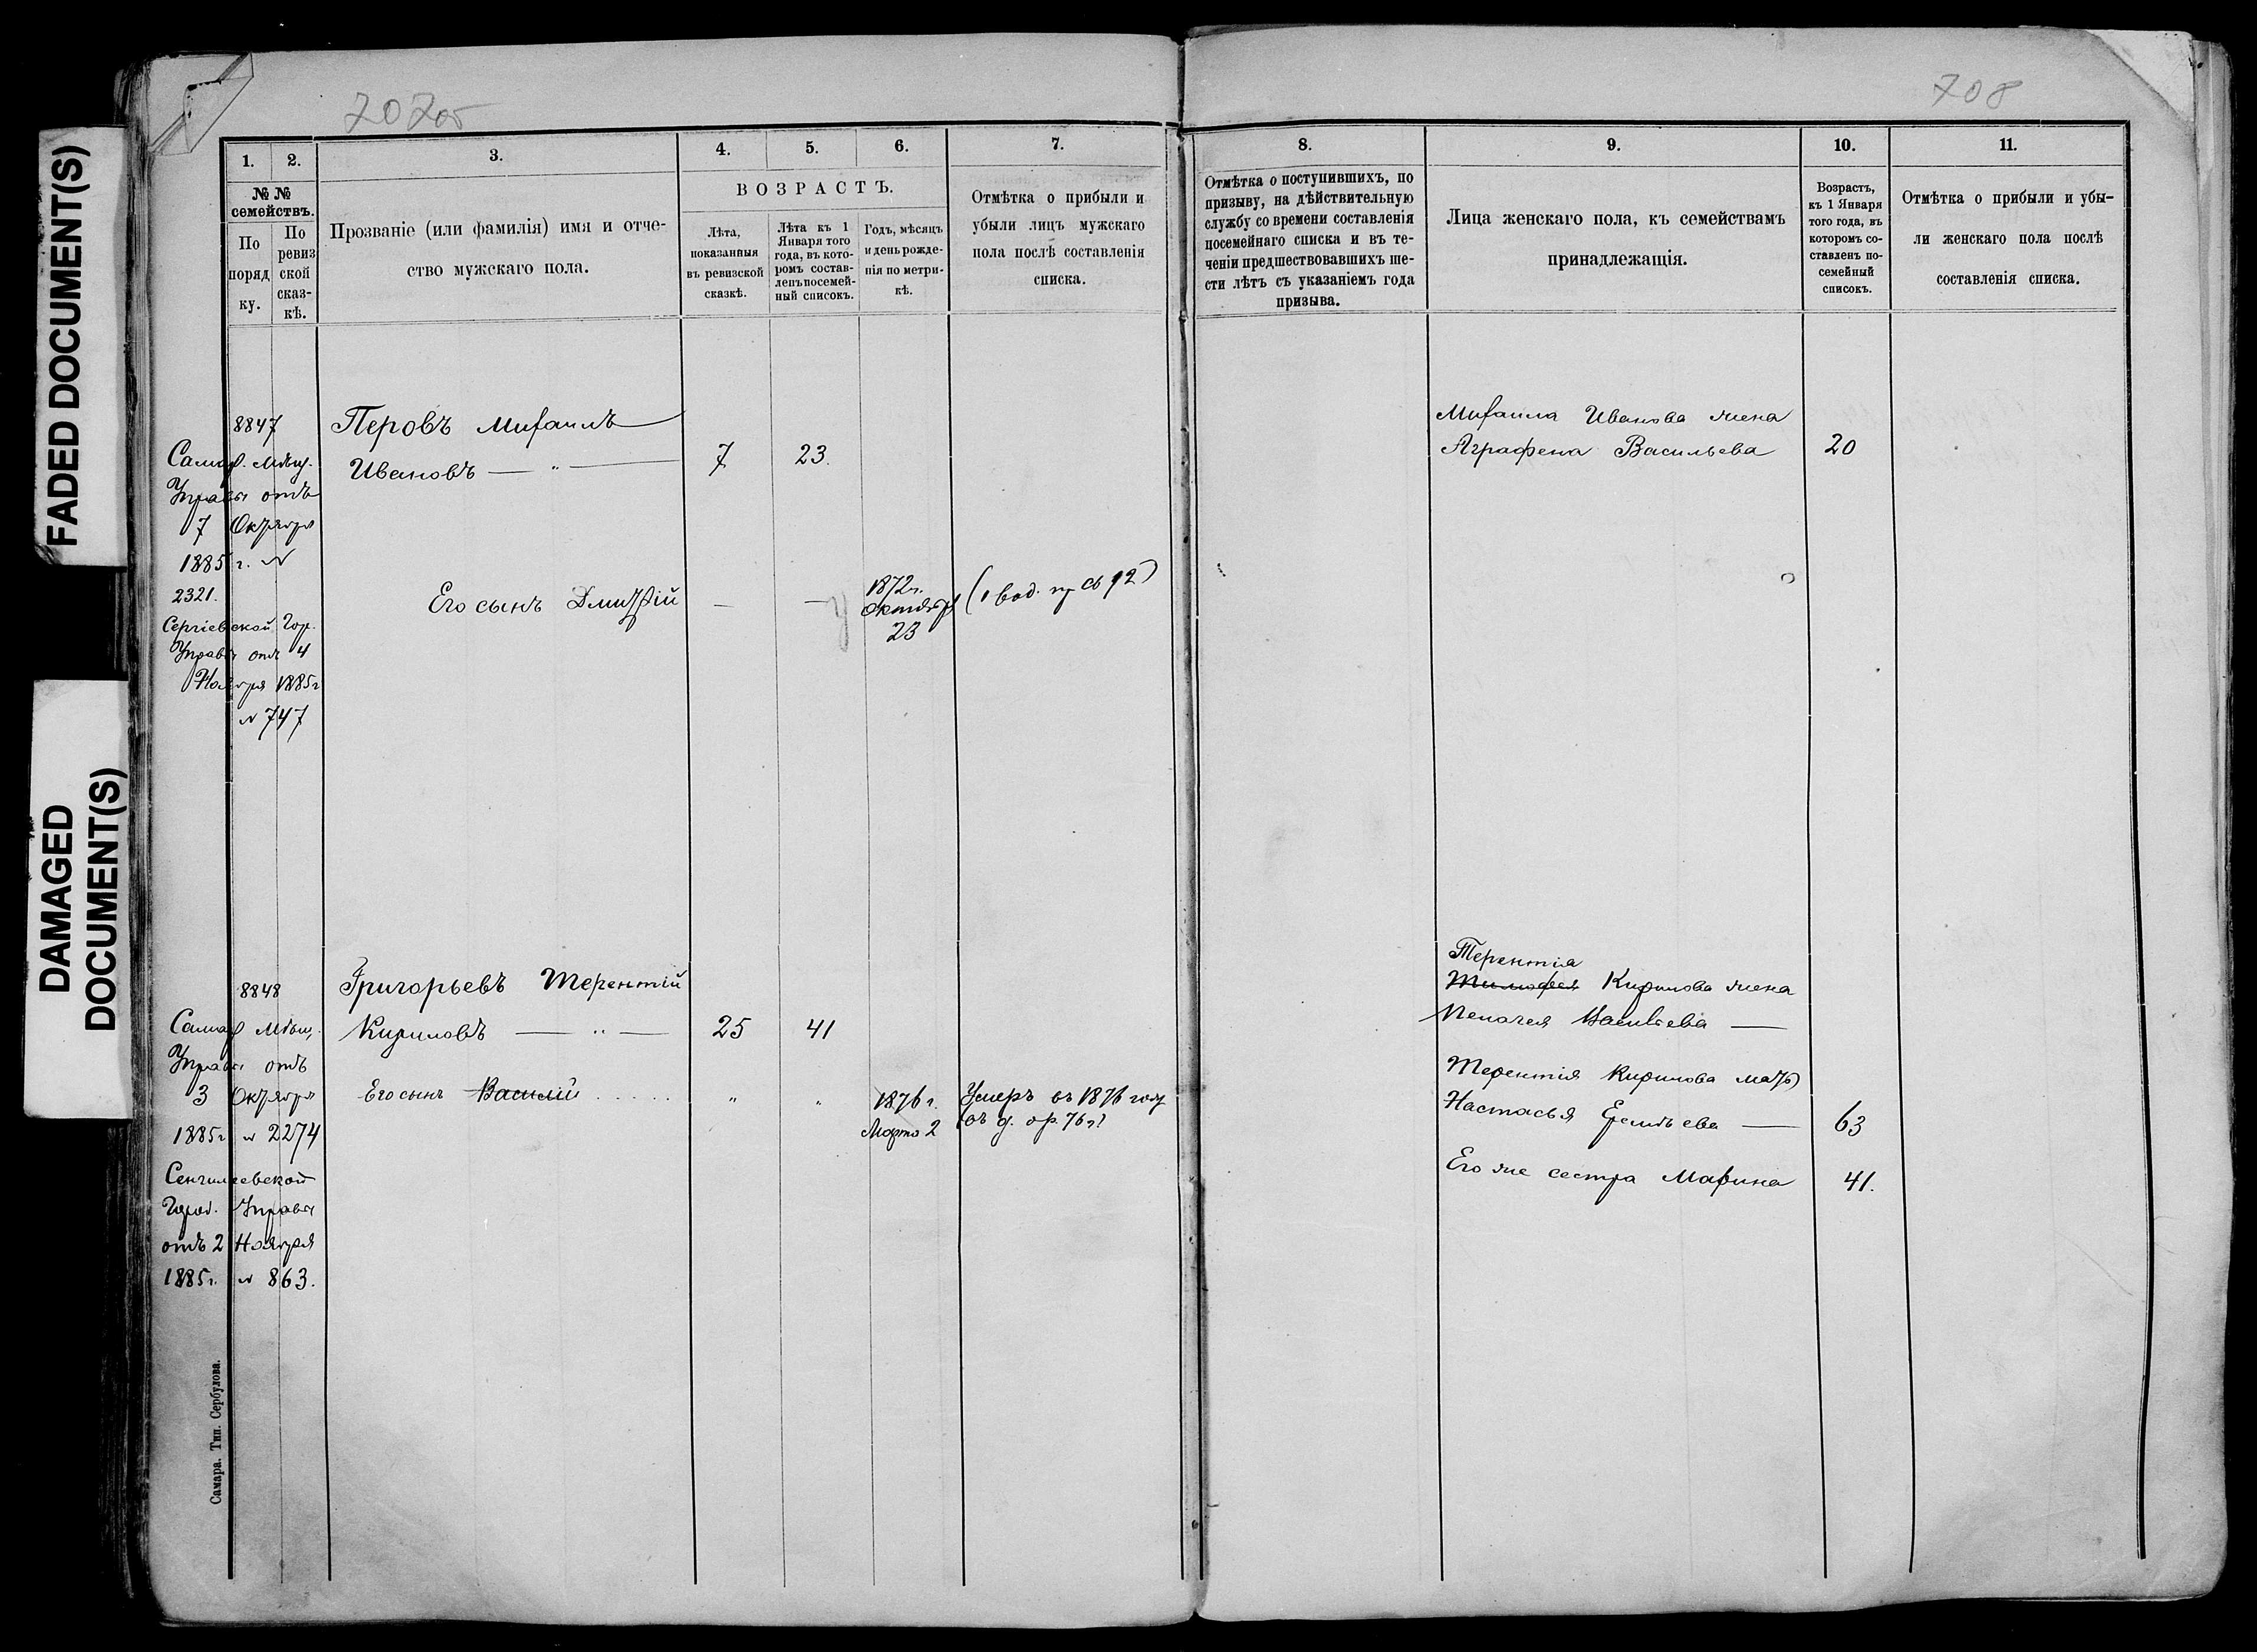 FADED DOCUMENT(S)
DAMAGED
DOCUMENT(S)
707об
708
1.
2.
3.
4.
5.
6.
7.
№ №
семействъ.
По
поряд
ку.
По
ревиз
ской
сказ-
кѣ.
Прозваніе (или фамилія) имя и отче-
ство мужскаго пола.
ВОЗРАСТЪ.
Лѣта,
показанныя
въ ревизской
сказкѣ.
Лѣта къ 1
Января того
года, въ кото-
ромъ состав-
ленъ посемей-
ный списокъ.
Годъ, мѣсяцъ
и день рожде-
нія по метри-
кѣ.
Отмѣтка о прибыли и
убыли лицъ мужскаго
пола послѣ составленія
списка.
8.
9.
10.
11.
Отмѣтка о поступившихъ, по
призыву, на дѣйствительную
службу со времени составленія
посемейнаго списка и въ те-
ченіи предшествовавшихъ ше-
сти лѣтъ съ указаніемъ года
призыва.
Лица женскаго пола, къ семействамъ
принадлежащія.
Возрастъ,
къ 1 Января
того года, въ
которомъ со-
ставленъ по-
семейный
списокъ.
Отмѣтка о прибыли и убы-
ли женскаго пола послѣ
составленія списка.
8847
Самар. Мѣщ.
Управы отъ
7 Октября
1885 г. №
2321.
Сергіевской Гор.
Управы отъ 4
Ноября 1885 г
№ 747
Перовъ Михаилъ
Ивановъ — " —
7
23.
Его сынъ Дмитрій
—
—
1872 г.
Октября
23
Михаила Иванова жена
Аграфена Васильева
20
8848
Самар Мѣщ.
Управы отъ
3 Октября
1885 г № 2274
Сенгилеевской
Город. Управы
отъ 2 Ноября
1885 г. № 863.
Григорьевъ Терентій
Кириловъ — " —
25
41
Его сынъ Василій . . . . .
"
"
1876 г.
Марта 2
Умеръ въ 1876 году
Терентія
Тимофея Кирилова жена
Пелагея Васильева —
Терентія Кирилова мать
Настасья —
63
Его же сестра Марина
41.
Самара. Тип. Сербулова.